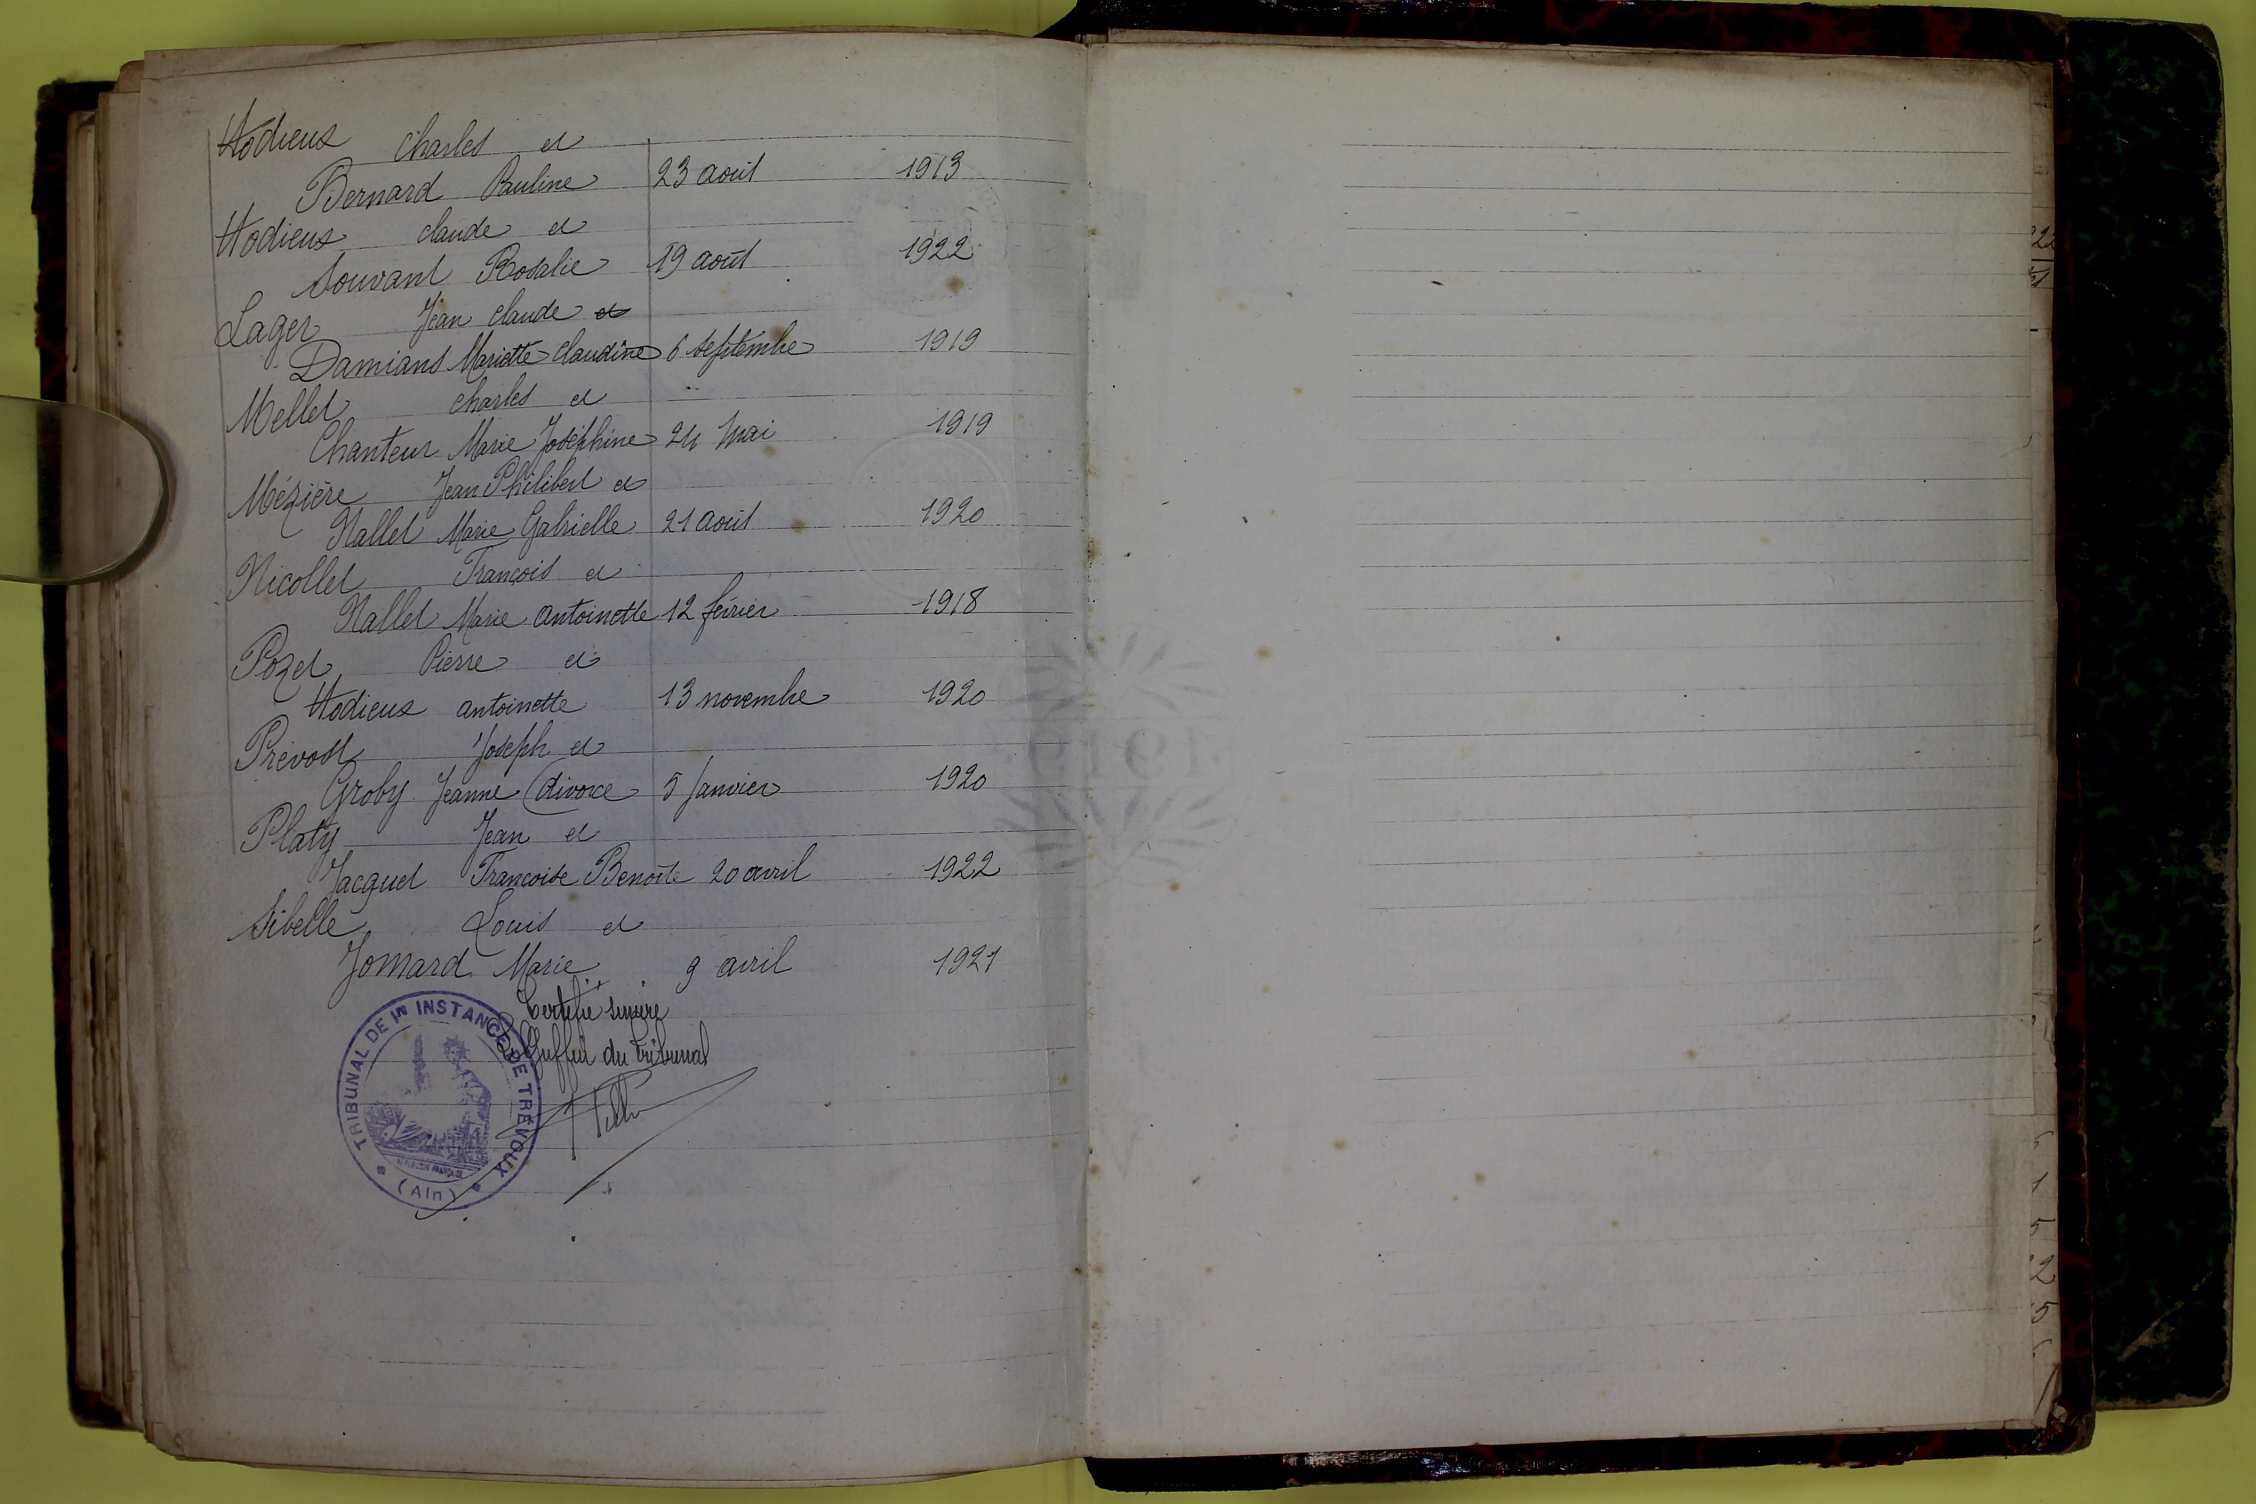 Hodieux Charles et
Bernard Pauline 23 août 1913
Hodieux claude et
Souvant Rosalie 19 août 1922
Lager Jean claude et
Damians Mariette claudine 6 septembre 1919
Mellet charles et
Chanteur Marie Joséphine 24 Mai 1919
Mézière Jean Philibert et
Nallet Marie Gabrielle 21 août 1920
Nicollet François et
Nallet Marie antoinette 12 février 1918
Pozet Pierre et
Hodieux antoinette 13 novembre 1920
Prévost Joseph et
Groby Jeanne (divorce 5 Janvier 1920
Platy Jean et
Jacquet Françoise Benoîte 20 avril 1922
Sibelle Louis et
Jomard Marie 9 avril 1921
Certifié sincère
Le Greffier du tribunal
TRIBUNAL DE 1re INSTANCE DE TRÉVOUX
(Ain)
1919